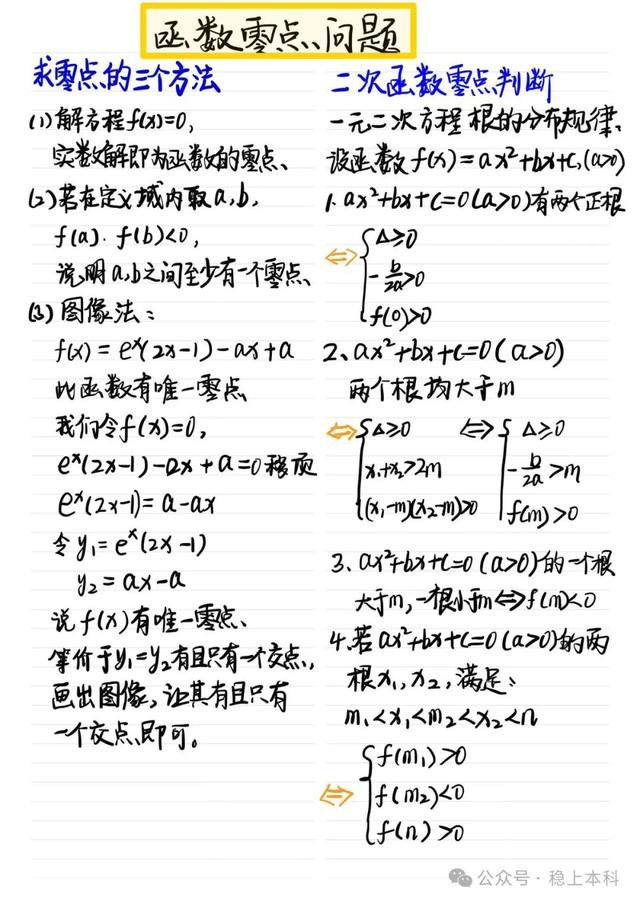 函数零点问题
求零点的三个方法
(1)解方程f(x)=0,
实数解即为函数的零点、
(2)若在定义域内取a,b,
f(a)·f(b)<0,
说明a,b之间至少有一个零点、
(3)图像法:
f(x)=eˣ(2x-1)-ax+a
此函数有唯一零点
我们令f(x)=0,
eˣ(2x-1)-ax+a=0移项
eˣ(2x-1)=a-ax
令y₁=eˣ(2x-1)
y₂=ax-a
说f(x)有唯一零点、
等价于y₁=y₂有且只有一个交点,
画出图像,让其有且只有
一个交点即可。
二次函数零点判断
一元二次方程根的分布规律、
设函数f(x)=ax²+bx+c,(a>0)
1.ax²+bx+c=0(a>0)有两个正根
⇔{Δ≥0
-b/2a>0
f(0)>0
2、ax²+bx+c=0(a>0)
两个根均大于m
⇔{Δ≥0 ⇔{Δ≥0
x₁+x₂>2m -b/2a>m
(x₁-m)(x₂-m)>0 f(m)>0
3、ax²+bx+c=0(a>0)的一个根
大于m,一根小于m⇔f(m)<0
4.若ax²+bx+c=0(a>0)的两
根x₁,x₂,满足:
m₁<x₁<m₂<x₂<n
{f(m₁)>0
⇔ f(m₂)<0
f(n)>0
公众号·稳上本科